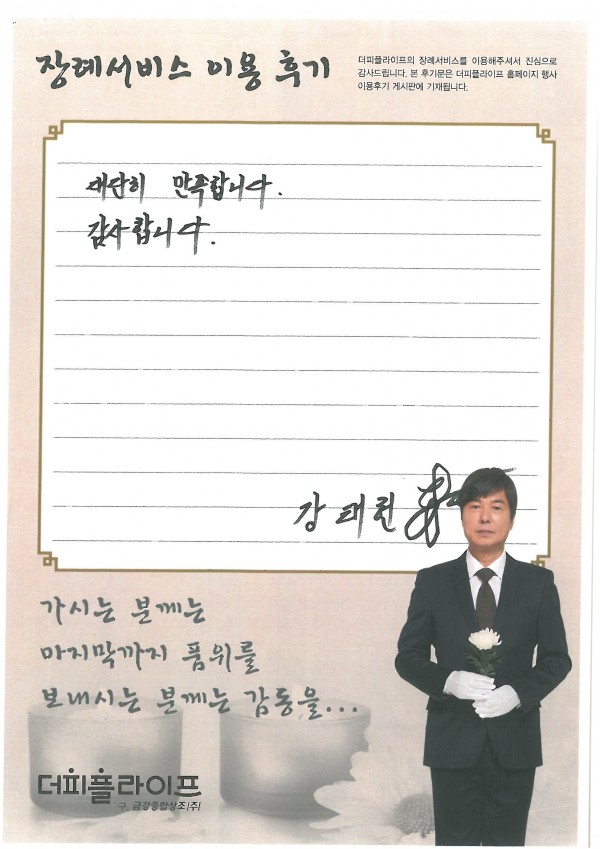 장례서비스 이용 후기
더피플라이프의 장례서비스를 이용해주셔서 진심으로
감사드립니다. 본 후기문은 더피플라이프 홈페이지 행사
이용후기 게시판에 기재됩니다.
대단히 만족합니다.
감사합니다.
강태원
가시는 분께는
마지막까지 품위를
보내시는 분께는 감동을...
더피플라이프
구. 금강종합상조(주)